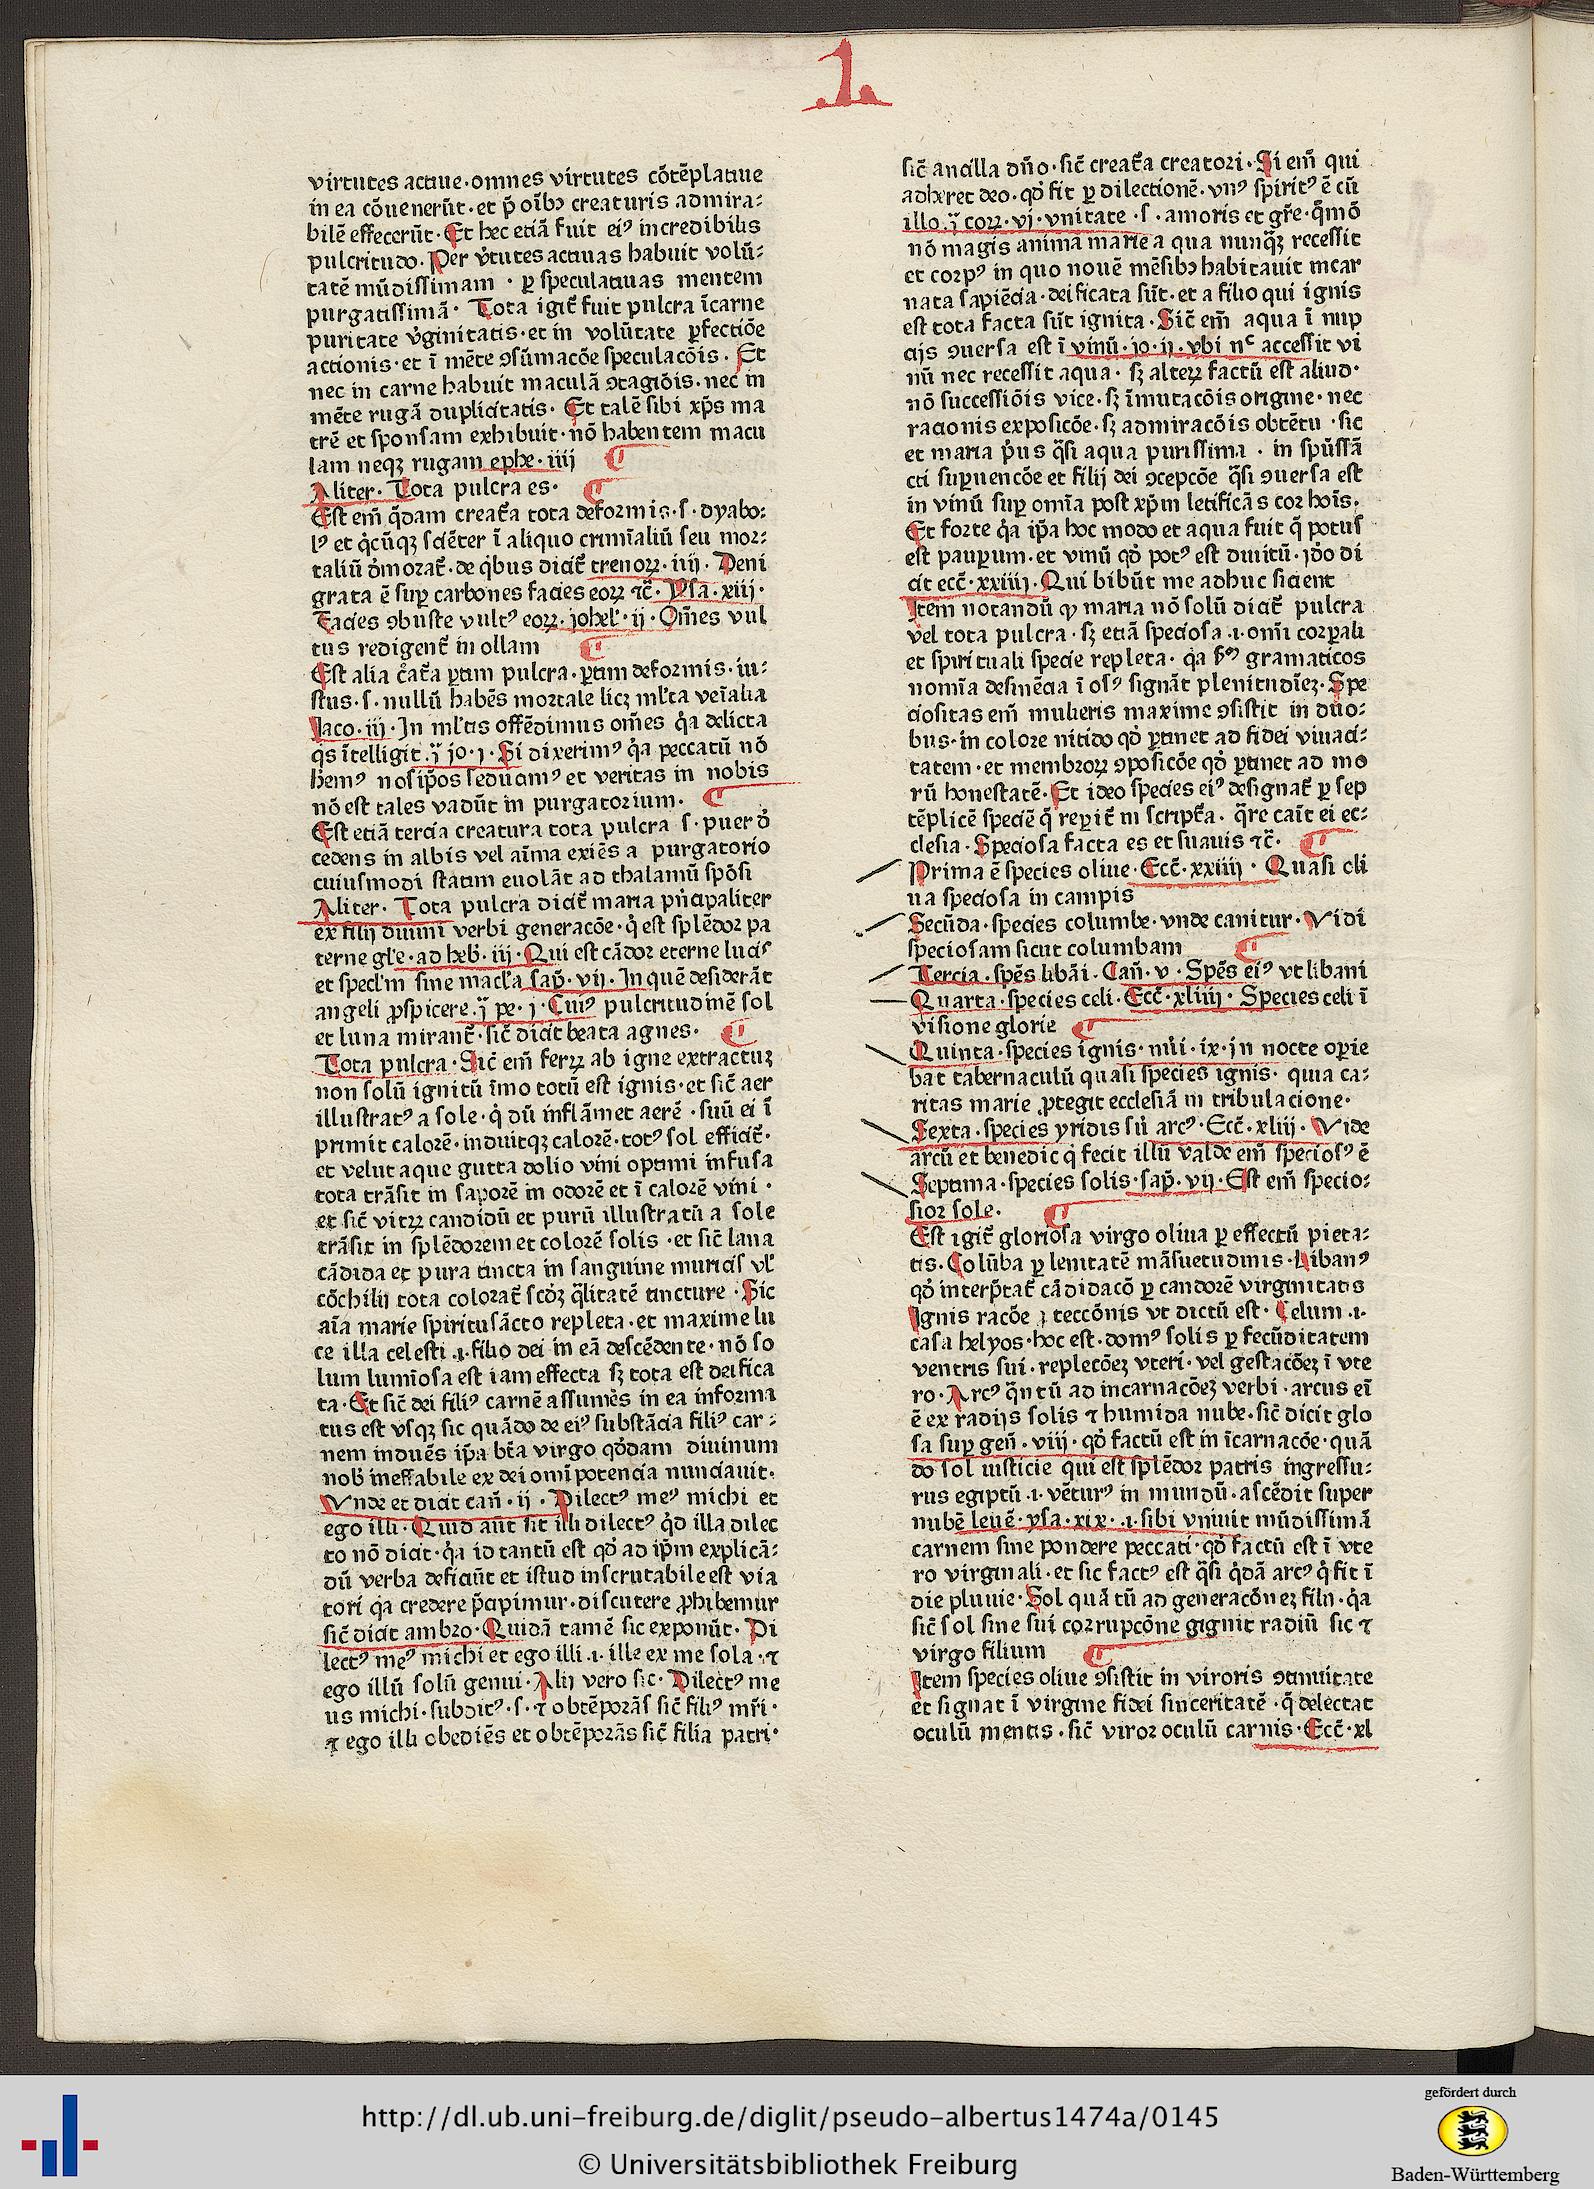 1
virtutes actiue·omnes virtutes cōtēplatiue
in ea cōuenerūt·et p̄ oībꝫ creaturis admira:
bilē effecerūt·Et hec etiā fuit ei⁹ incredibilis
pulcritudo. Per v̓tutes actiuas habuit volū:
tatē mūdissimam · ꝑ speculatiuas mentem
purgatissimā· Tota igit̄ fuit pulcra ī carne
puritate v̓ginitatis·et in volūtate ꝑfectiōe
actionis·et ī mēte ꝯsūmacōe speculacōis. Et
nec in carne habuit maculā ꝯtagiōis·nec in
mēte rugā duplicitatis· Et talē sibi xp̄s ma
trē et sponsam exhibuit·nō habentem macu
lam neqꝫ rugam ephe·iiij
Aliter· Tota pulcra es·
Est em̄ q̄dam creat̄a tota deformis·s·dyabo:
l⁹ et q̇cūqꝫ sciēter ī aliquo crimīaliū seu mor:
taliū d̓morat̄·de q̇bus dicit̄ trenoꝝ·iiij· Deni
grata ē suꝑ carbones facies eoꝝ ⁊c̄· Ysa·xiij·
Facies ꝯbuste vult⁹ eoꝝ·johel̓·ij·Om̄es vul
tus redigent̄ in ollam
Est alia c̓at̄a ꝑtim pulcra·ꝑtim deformis·iu:
stus·s·nullū habēs mortale licꝫ ml̓ta venīalia
Jaco·iij·In ml̓tis offēdimus om̄es q̇a delicta
q̓s ītelligit·ꝭ jo·j·Si dixerim⁹ q̇a peccatū nō
hēm⁹ nosip̄os seducim⁹ et veritas in nobis
nō est tales vadūt in purgatorium·
Est etiā tercia creatura tota pulcra s·puer d̓
cedens in albis vel aīma exiēs a purgatorio
cuiusmodi statim euolāt ad thalamū spōsi
Aliter· Tota pulcra dicit̄ maria pn̄cipaliter
ex filij diuini verbi generacōe·q̇ est splēdor pa
terne gl̓e·ad heb̓·iij·Qui est cādor eterne lucis
et specl̓m sine macl̓a sap̄·vij·In quē desiderāt
angeli ꝓspicere·ꝭ pe·j·Cui⁹ pulcritudinē sol
et luna mirant̄·sic̄ dicit beata agnes·
Tota pulcra·Sic̄ em̄ ferꝝ ab igne extractuꝫ
non solū ignitū īmo totū est ignis·et sic̄ aer
illustrat⁹ a sole·q̇ dū inflāmet aerē·suū ei ī
primit calorē·induitqꝫ calorē·tot⁹ sol efficit̄·
et velut aque gutta dolio vini optimi infusa
tota trāsit in saporē in odorē et ī calorē vini·
et sic̄ vitꝝ candidū et purū illustratū a sole
trāsit in splēdorem et colorē solis·et sic̄ lana
cādida et pura tincta in sanguine muricis vl̓
cōchilij tota colorat̄ scd̓ꝫ q̄litatē tincture·Sic
aīa marie spiritusācto repleta·et maxime lu
ce illa celesti ·i·filio dei in eā descēdente·nō so
lum lumīosa est iam effecta sꝫ tota est deifica
ta·Et sic̄ dei fili⁹ carnē assumēs in ea informa
tus est vsqꝫ sic quādo de ei⁹ substācia fili⁹ car:
nem induēs ip̄a bt̄a virgo qd̓dam diuinum
nob̓ ineffabile ex dei omīpotencia nunciauit·
Vnde et dicit can̄·ij·Dilect⁹ me⁹ michi et
ego illi·Quid aūt sit illi dilect⁹ qd̓ illa dilec
to nō dicit·q̇a id tantū est qd̓ ad ip̄m explicā:
dū verba deficiūt et istud inscrutabile est via
tori q̇a credere p̄cipimur·discutere ꝓhibemur
sic̄ dicit ambro·Quidā tamē sic exponūt· Di
lect⁹ me⁹ michi et ego illi·i·ille ex me sola·⁊
ego illū solū genui·Alij vero sic·Dilect⁹ me
us michi·subdit⁹·s·⁊ obtēporās sic̄ fili⁹ mr̄i·
⁊ ego illi obediēs et obtēporās sic̄ filia patri·
sic̄ ancilla dn̄o·sic̄ creat̄a creatori·Si em̄ qui
adheret deo·qd̓ fit ꝑ dilectionē·vn⁹ spirit⁹ ē cū
illo·ꝭ coꝝ·vj·vnitate·s·amoris et gr̄e·q̄mō
nō magis anima marie a qua nunq̄ꝫ recessit
et corp⁹ in quo nouē mēsibꝫ habitauit incar
nata sapiēcia·deificata sūt·et a filio qui ignis
est tota facta sūt ignita·Sic̄ em̄ aqua ī nup
cijs ꝯuersa est ī vinū·jo·ij·vbi nc̄ accessit vi
nū nec recessit aqua·sꝫ alteꝝ factū est aliud·
nō successiōis vice·sꝫ īmutacōis origine·nec
racionis exposicōe·sꝫ admiracōis obtētu·sic
et maria p̓us q̄si aqua purissima·in spūssā
cti suꝑuencōe et filij dei ꝯcepcōe q̄si ꝯuersa est
in vinū suꝑ omīa post xp̄m letificās cor hoīs·
Et forte q̇a ip̄a hoc modo et aqua fuit q̄ potus
est pauꝑum·et vinū qd̓ pot⁹ est diuitū·jd̓o di
cit ecc̄·xxiiij·Qui bibūt me adhuc sicient
Item notandū ꝙ maria nō solū dicit̄ pulcra
vel tota pulcra·sꝫ etiā speciosa·i·omī corꝑali
et spirituali specie repleta·q̇a sm̄ gramaticos
nomīa desinēcia ī os⁹ signāt plenitudīeꝫ·Spe
ciositas em̄ mulieris maxime ꝯsistit in duo:
bus·in colore nitido qd̓ ꝑtinet ad fidei viuaci:
tatem·et membroꝝ ꝯposicōe qd̓ ꝑtinet ad mo
rū honestatē·Et ideo species ei⁹ designat̄ ꝑ sep
tēplicē speciē q̄ reꝑit̄ in script̄a·q̄re caīt ei ec:
clesia·Speciosa facta es et suauis ⁊c̄·
Prima ē species oliue·Ecc̄·xxiiij·Quasi oli
ua speciosa in campis
Secūda·species columbe·vnde canitur·Vidi
speciosam sicut columbam
Tercia·spēs libāi·Can̄·v·Spēs ei⁹ vt libani
Quarta·species celi·Ecc̄·xliiij·Species celi ī
visione glorie
Quinta·species ignis·nūi·ix·jn nocte oꝑie
bat tabernaculū quasi species ignis·quia ca:
ritas marie ꝓtegit ecclesiā in tribulacione·
Sexta·species yridis siū arc⁹·Ecc̄·xliij·Vide
arcū et benedic q̇ fecit illū valde em̄ specios⁹ ē
Septima·species solis·sap̄·vij·Est em̄ specio:
sior sole·
Est igit̄ gloriosa virgo oliua ꝑ effectū pieta:
tis·Colūba ꝑ lenitatē māsuetudinis·Liban⁹
qd̓ interp̄tat̄ cādidacō ꝑ candorē virginitatis
Ignis racōe ꝓteccōnis vt dictū est·Celum·i·
casa helyos·hoc est·dom⁹ solis ꝑ fecūditatem
ventris sui·repletōeꝫ vteri·vel gestacōeꝫ ī vte
ro·Arc⁹ q̄ntū ad incarnacōeꝫ verbi·arcus eī
ē ex radijs solis ⁊ humida nube·sic̄ dicit glo
sa suꝑ gen̄·viij·qd̓ factū est in īcarnacōe·quā
do sol iusticie qui est splēdor patris ingressu:
rus egiptū·i·vētur⁹ in mundū·ascēdit super
nubē leuē·ysa·xix··i·sibi vniuit mūdissimā
carnem sine pondere peccati·qd̓ factū est ī vte
ro virginali·et sic fact⁹ est q̄si q̇dā arc⁹ q̇ fit ī
die pluuie·Sol quātū ad generacōneꝫ filij·q̇a
sic̄ sol sine sui corrupcōne gignit radiū sic ⁊
virgo filium
Item species oliue ꝯsistit in viroris ꝯtinuitate
et signat ī virgine fidei sinceritatē·q̄ delectat
oculū mentis·sic̄ viror oculū carnis·Ecc̄·xl
http://dl.ub.uni-freiburg.de/diglit/pseudo-albertus1474a/0145
© Universitätsbibliothek Freiburg
gefördert durch
Baden-Württemberg